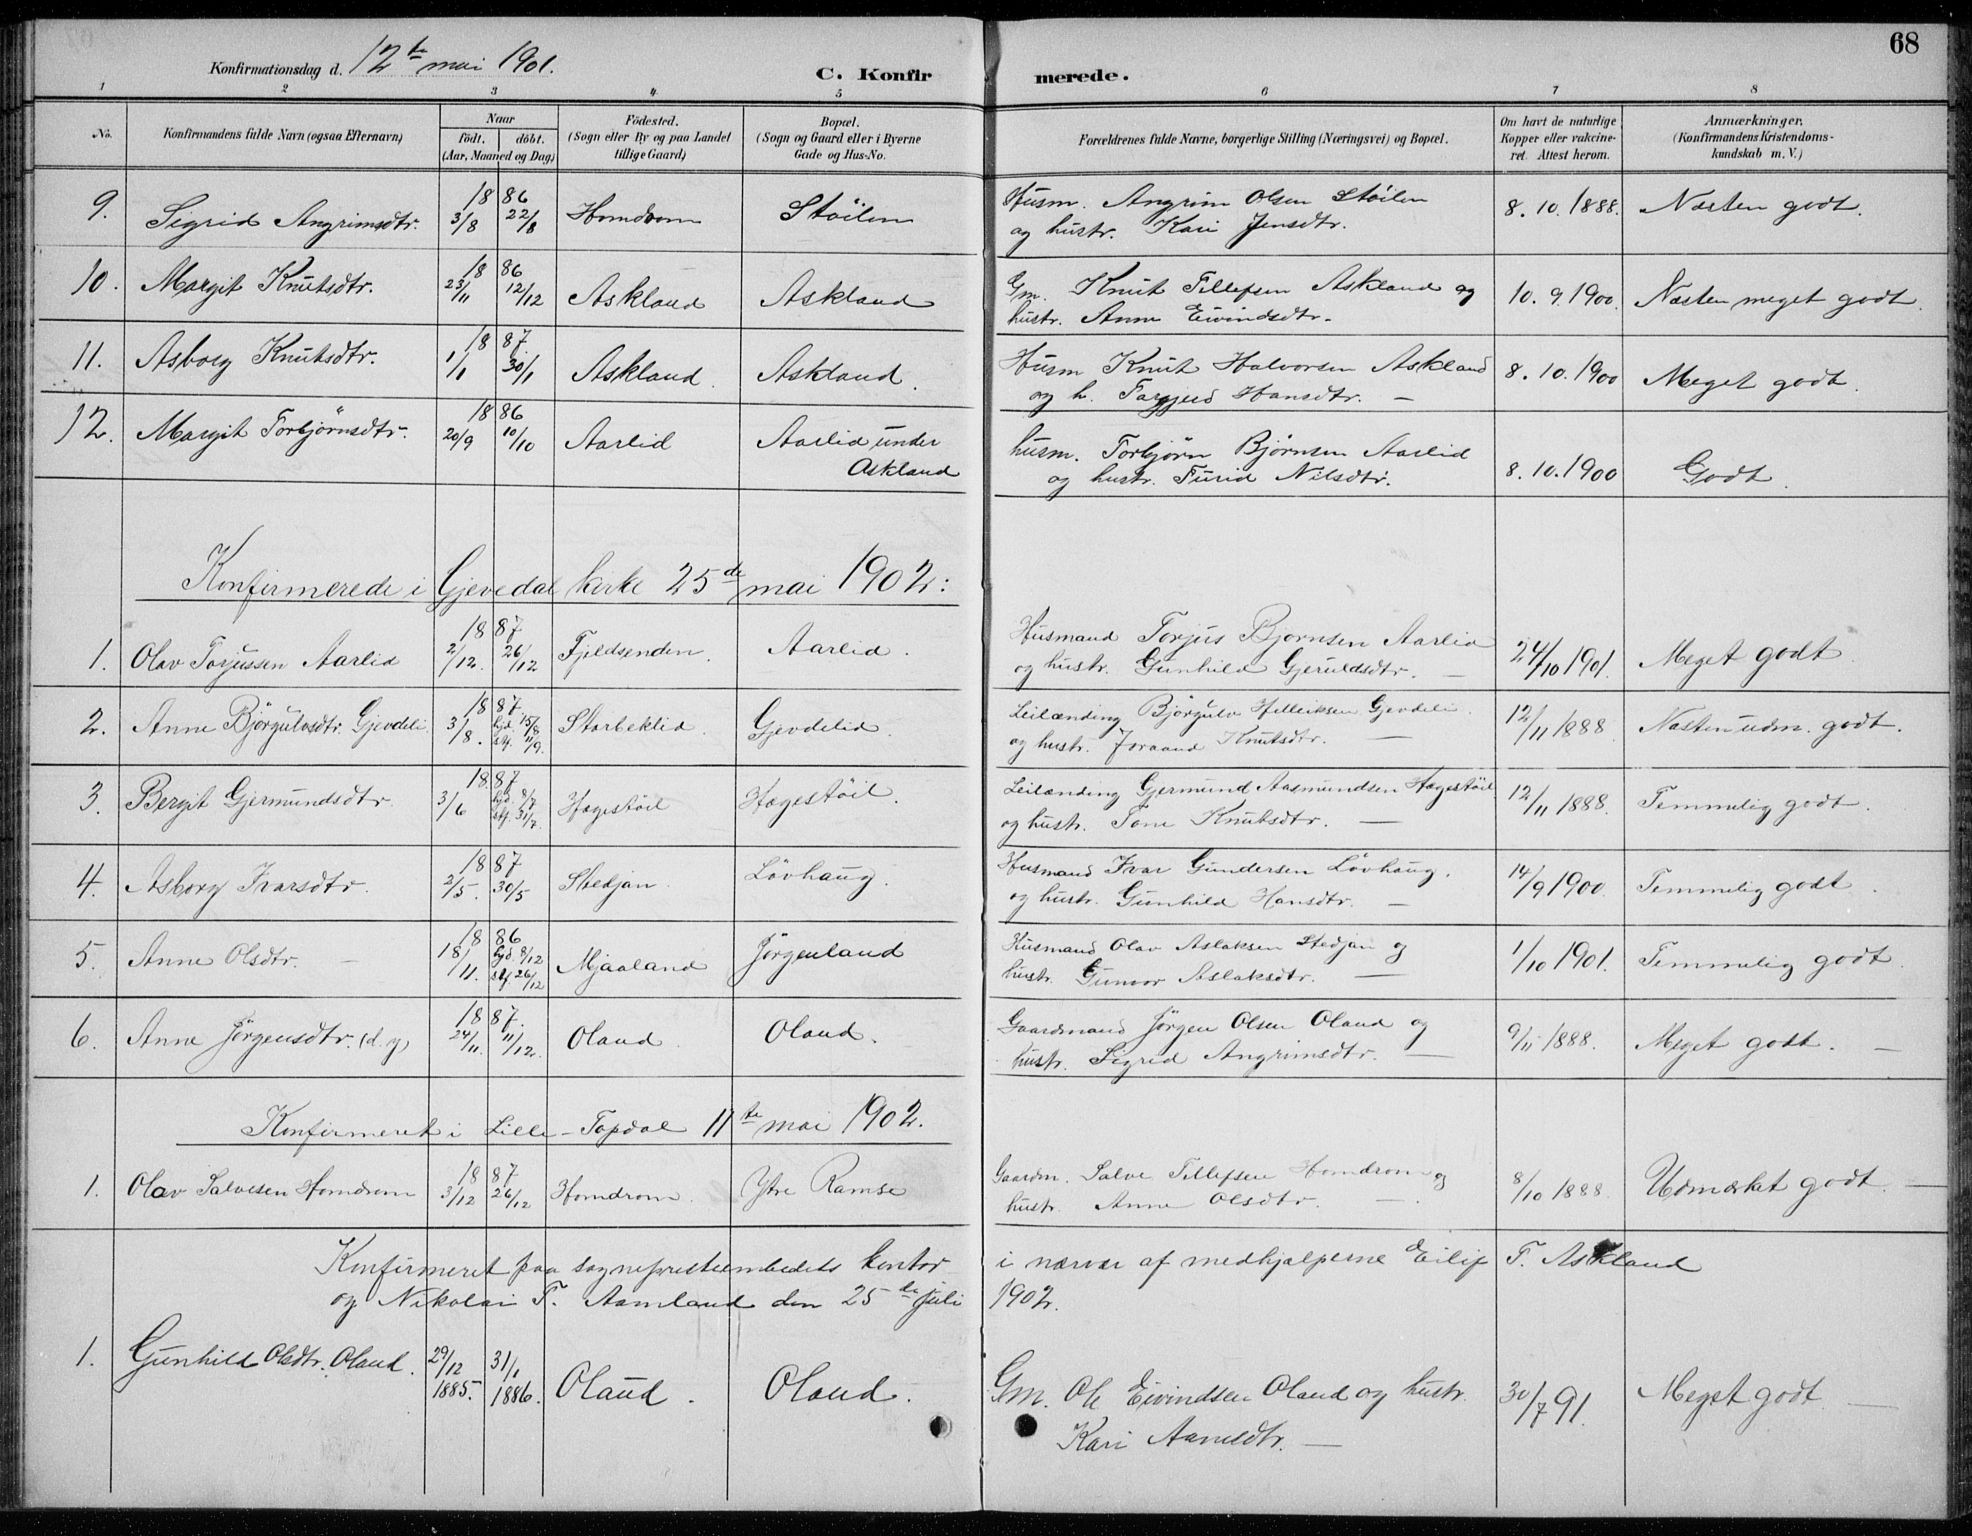 68
Konfirmationsdag d. 12te mai 1901.
C. Konfirmerede.
1 2 3 4 5 6 7 8
No. Konfirmandens fulde Navn (ogsaa Efternavn) Naar födt. döbt. (Aar, Maaned og Dag) Födested. (Sogn eller By og paa Landet tillige Gaard) Bopæl. (Sogn og Gaard eller i Byerne Gade og Hus-No. Forældrenes fulde Navne, borgerlige Stilling (Næringsvei) og Bopæl. Om havt de naturlige Kopper eller vakcineret. Attest herom. Anmærkninger. (Konfirmandens Kristendomskundskab m. V.)
9. Sigrid Angrimsdtr. 1886 3/8 22/8 Homdrom Stöilen Husm. Angrim Olsen Stöilen
og hustr. Kari Jensdtr. 8.10.1888. Næsten godt.
10. Margit Knutsdtr. 1886 23/11 12/12 Askland Askland Gm. Knut Tellefsen Askland og
hustr. Anne Eivindsdtr. 10.9.1900 Næsten meget godt.
11. Asborg Knutsdtr. 1887. 1/1 30/1 Askland. Askland. Husm Knut Halvorsen Askland
og h. Targjerd Hansdtr. – 8.10.1900 Meget godt.
12. Margit Torbjörnsdtr. 1886 20/9 10/10 Aarlid Aarlid under
Askland husm. Torbjörn Björnsen Aarlid
og hustr. Turid Nilsdtr. 8.10.1900 Godt.
Konfirmerede i Gjevedal kirke 25de mai 1902:
1. Olav Torjussen Aarlid 1887 2/12. 26/12 Fjeldsenden. Aarlid. Husmand Torjus Bjornsen Aarlid
og hustr. Gunhild Gjeruldsdtr. – 24/10 1901. Meget godt
2. Anne Björgulvsdtr. Gjevdeli 1887. 3/8. hjd. 15/8 stf. 11/9. Storbeklid. Gjevdelid. Leilænding Björgulv Helleiksen Gjevdeli.
og hustr. Joraand Knutsdtr. – 12/11 1888 Næsten udm. godt.
3. Bergit Gjermundsdtr. 1887 3/6 hjd. 8/7 stf. 31/7. Hægestöil Hægestöil. Leilænding Gjermund Aasmundsen Hægestöil
og hustr. Tone Knutsdtr. – 12/11 1888. Temmelig godt.
4. Asborg Ivarsdtr. 1887 2/5. 30/5 Stedjan. Lövhaug. Husmand Ivar Gundersen Lövhaug.
og hustr. Gunhild Hansdtr. – 14/9 1900. Temmelig godt.
5. Anne Olsdtr. – 1886 18/11. hjd. 8/12 stf. 26/12 Mjaaland Jörgenland Husmand Olav Aslaksen Stedjan og
hustr. Gunvor Aslaksdtr. – 1/10 1901. Temmelig godt
6. Anne Jörgensdtr. (d.y) 1887. 24/11. 11/12. Oland. Oland. Gaardmand Jörgen Olsen Oland og
hustr. Sigrid Angrimsdtr. – 9/11 1888. Meget godt. –
Konfirmeret i Lille-Topdal 11te mai 1902.
1. Olav Salvesen Homdrom 1887 3/12 26/12 Homdrom. Ytre Ramse Gaardm. Salve Tellefsen Homdrom og
hustr. Anne Olsdtr. – 8/10 1888. Udmærket godt. –
Konfirmeret paa sogneprestembedets kontor i nærvær af medhjælperne Eilif T. Askland
og Nikolai T. Aamland den 25de juli 1902.
1. Gunhild Olsdtr. Oland. 29/12 1885. 31/1 1886. Oland. Oland. Gm. Ole Eivindsen Oland og hustr.
Kari Aaneldtr. – 30/7 91. Meget godt –